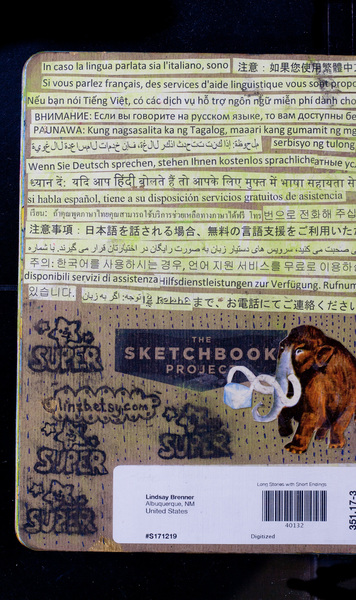 In caso la lingua parlata sia l'italiano, sono
注意：如果您使用繁體中
Si vous parlez français, des services d'aide linguistique vous sont propo
Nếu bạn nói Tiếng Việt, có các dịch vụ hỗ trợ ngôn ngữ miễn phí dành cho
ВНИМАНИЕ: Если вы говорите на русском языке, то вам доступны бе
PAUNAWA: Kung nagsasalita ka ng Tagalog, maaari kang gumamit ng m
ملحوظة: إذا كنت تتحدث اذكر اللغة، فإن خدمات المساعدة اللغوية
serbisyo ng tulong
Wenn Sie Deutsch sprechen, stehen Ihnen kostenlos sprachliche
ध्यान दें: यदि आप हिंदी बोलते हैं तो आपके लिए मुफ्त में भाषा सहायता से
si habla español, tiene a su disposición servicios gratuitos de asistencia
เรียน: ถ้าคุณพูดภาษาไทยคุณสามารถใช้บริการช่วยเหลือทางภาษาได้ฟรี โทร
번으로 전화해 주십
注意事項：日本語を話される場合、無料の言語支援をご利用いただ
صحبت می کنید، سرویس های دستیار زبان به صورت رایگان در اختیارتان قرار می گیرند. با شماره
주의: 한국어를 사용하시는 경우, 언어 지원 서비스를 무료로 이용하
disponibili servizi di assistenza
Hilfsdienstleistungen zur Verfügung. Rufnum
있습니다.
توجه: اگر به زبان
まで、お電話にてご連絡ください
THE
SKETCHBOOK
PROJECT
SUPER
linzbetsy.com
SUPER
SUPER
SUPER
Lindsay Brenner
Albuquerque, NM
United States
#S171219
Long Stories with Short Endings
40132
Digitized
351.17-3